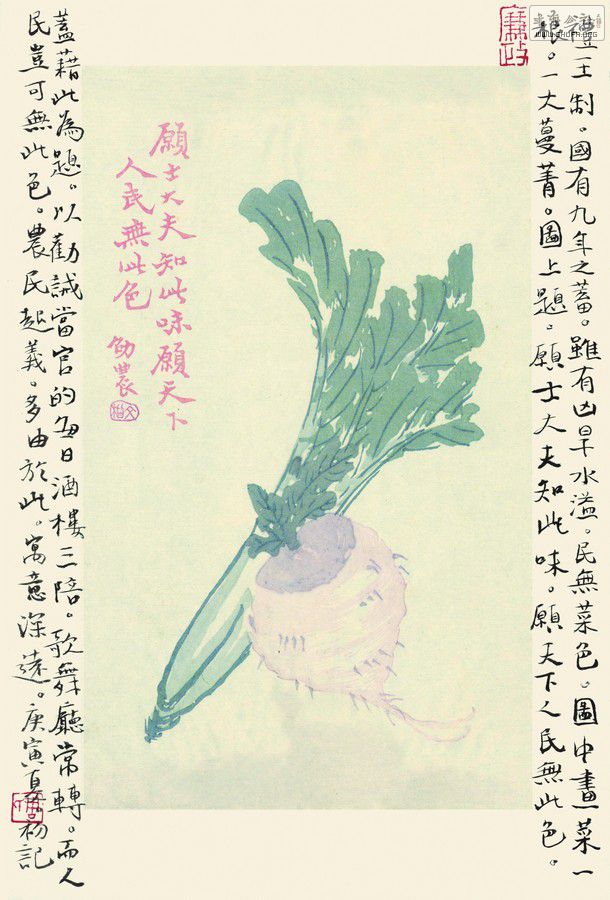 禮王制。國有九年之蓄。雖有凶旱水溢。民無菜色。圖中畫菜一
根。一大蔓菁。圖上題。願士大夫知此味。願天下人民無此色。
願士大夫知此味願天下
人民無此色
勛農
蓋藉此為題。以勸誡當官的每日酒樓三陪。歌舞廳常轉。而人
民豈可無此色。農民起義。多由於此。寓意深遠。庚寅夏初記
廉政
WWW.SHUFA.ORG